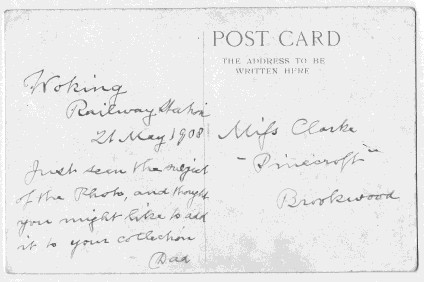 POST CARD
THE ADDRESS TO BE
WRITTEN HERE
Woking
Railway Station
21 May 1908
Just seen the subject
of the Photo, and thought
you might like to add
it to your collection
Dad
Miss Clarke
"Pinecroft"
Brookwood